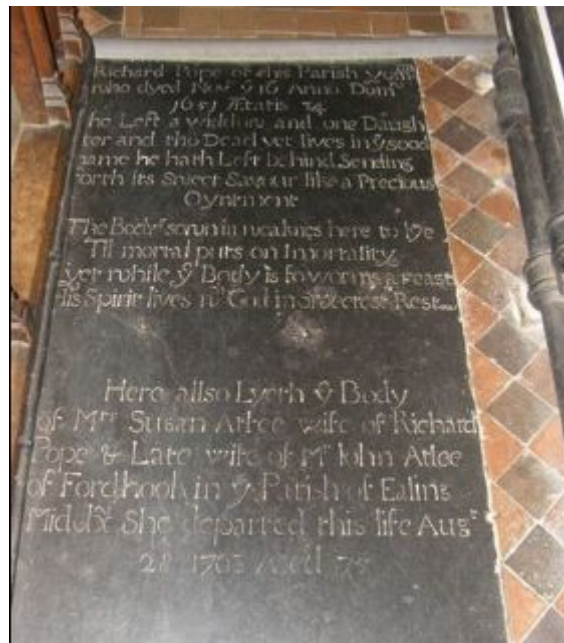 Richard Pope of this Parish
who dyed Nov yͤ 16 Anno Domͥ
1651 Ætatis 34
he Left a widdow and one Daugh
ter and tho Dead yet lives in yͤ good
name he hath Left behind Sending
forth its Sweet Savour like a Precious
Oyntment
The Body's sown in weaknes here to lye
Til mortal puts on Imortality
yet while yͤ Body is to worms a feast
His Spirit lives wͭͪ God in Rest
Here allso Lyeth yͤ Body
of Mʳˢ Susan Atlee wife of Richard
Pope & Late wife of Mʳ John Atlee
of Fordhook in yͤ Parish of Ealing
Middˣ She departed this life Augˢᵗ
28 1703 Aged 75